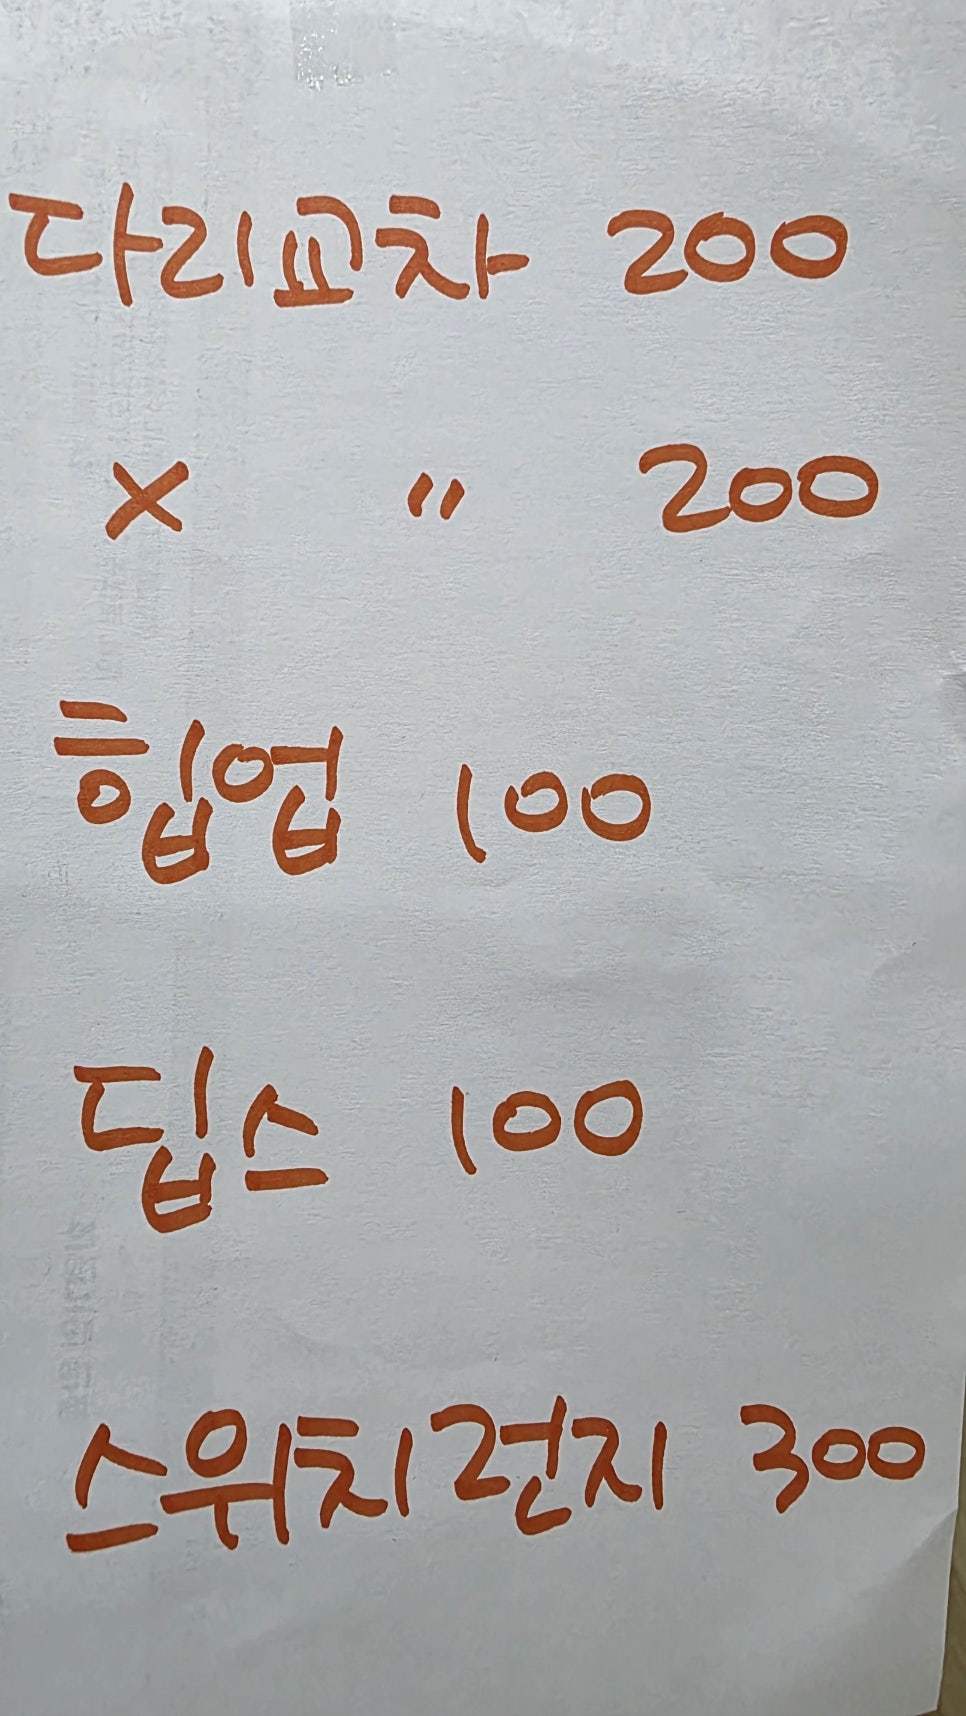 다리교차 200
× 〃 200
힙업 100
딥스 100
스위치런지 300